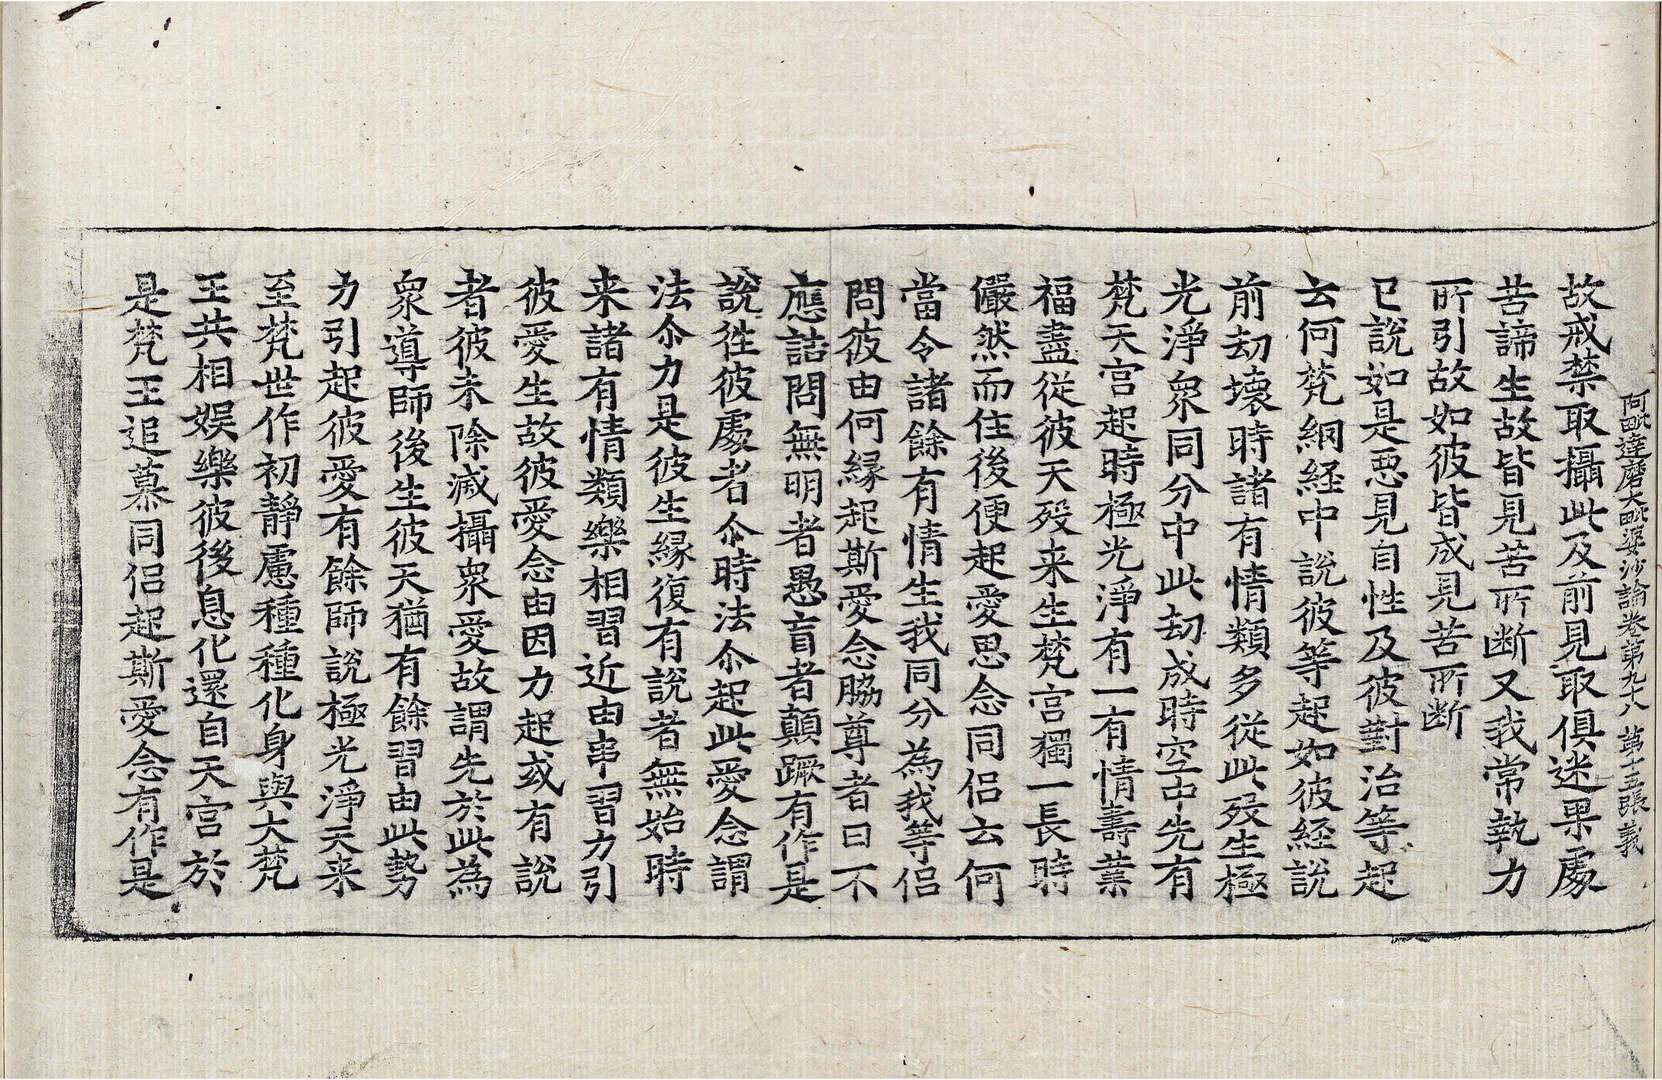 阿毗達磨大毗婆沙論卷第九十八 第十五張 義
故戒禁取攝此及前見取俱迷果處
苦諦生故皆見苦所断又我常執力
所引故如彼皆成見苦所断
已說如是惡見自性及彼對治等起
云何梵網経中說彼等起如彼経說
前劫壊時諸有情類多従此歿生極
光淨衆同分中此劫成時空中先有
梵天宮起時極光淨有一有情壽業
福盡従彼天歿来生梵宮獨一長時
儼然而住後便起愛思念同侣云何
當令諸餘有情生我同分為我等侣
問彼由何縁起斯愛念脇尊者曰不
應詰問無明者愚盲者顛蹶有作是
說徃彼處者尒時法尒起此愛念謂
法尒力是彼生縁復有說者無始時
来諸有情類樂相習近由串習力引
彼愛生故彼愛念由因力起或有說
者彼未除減攝衆愛故謂先於此為
衆導師後生彼天猶有餘習由此勢
力引起彼愛有餘師說極光淨天来
至梵世作初靜慮種種化身與大梵
王共相娱樂彼後息化還自天宮於
是梵王追慕同侣起斯愛念有作是